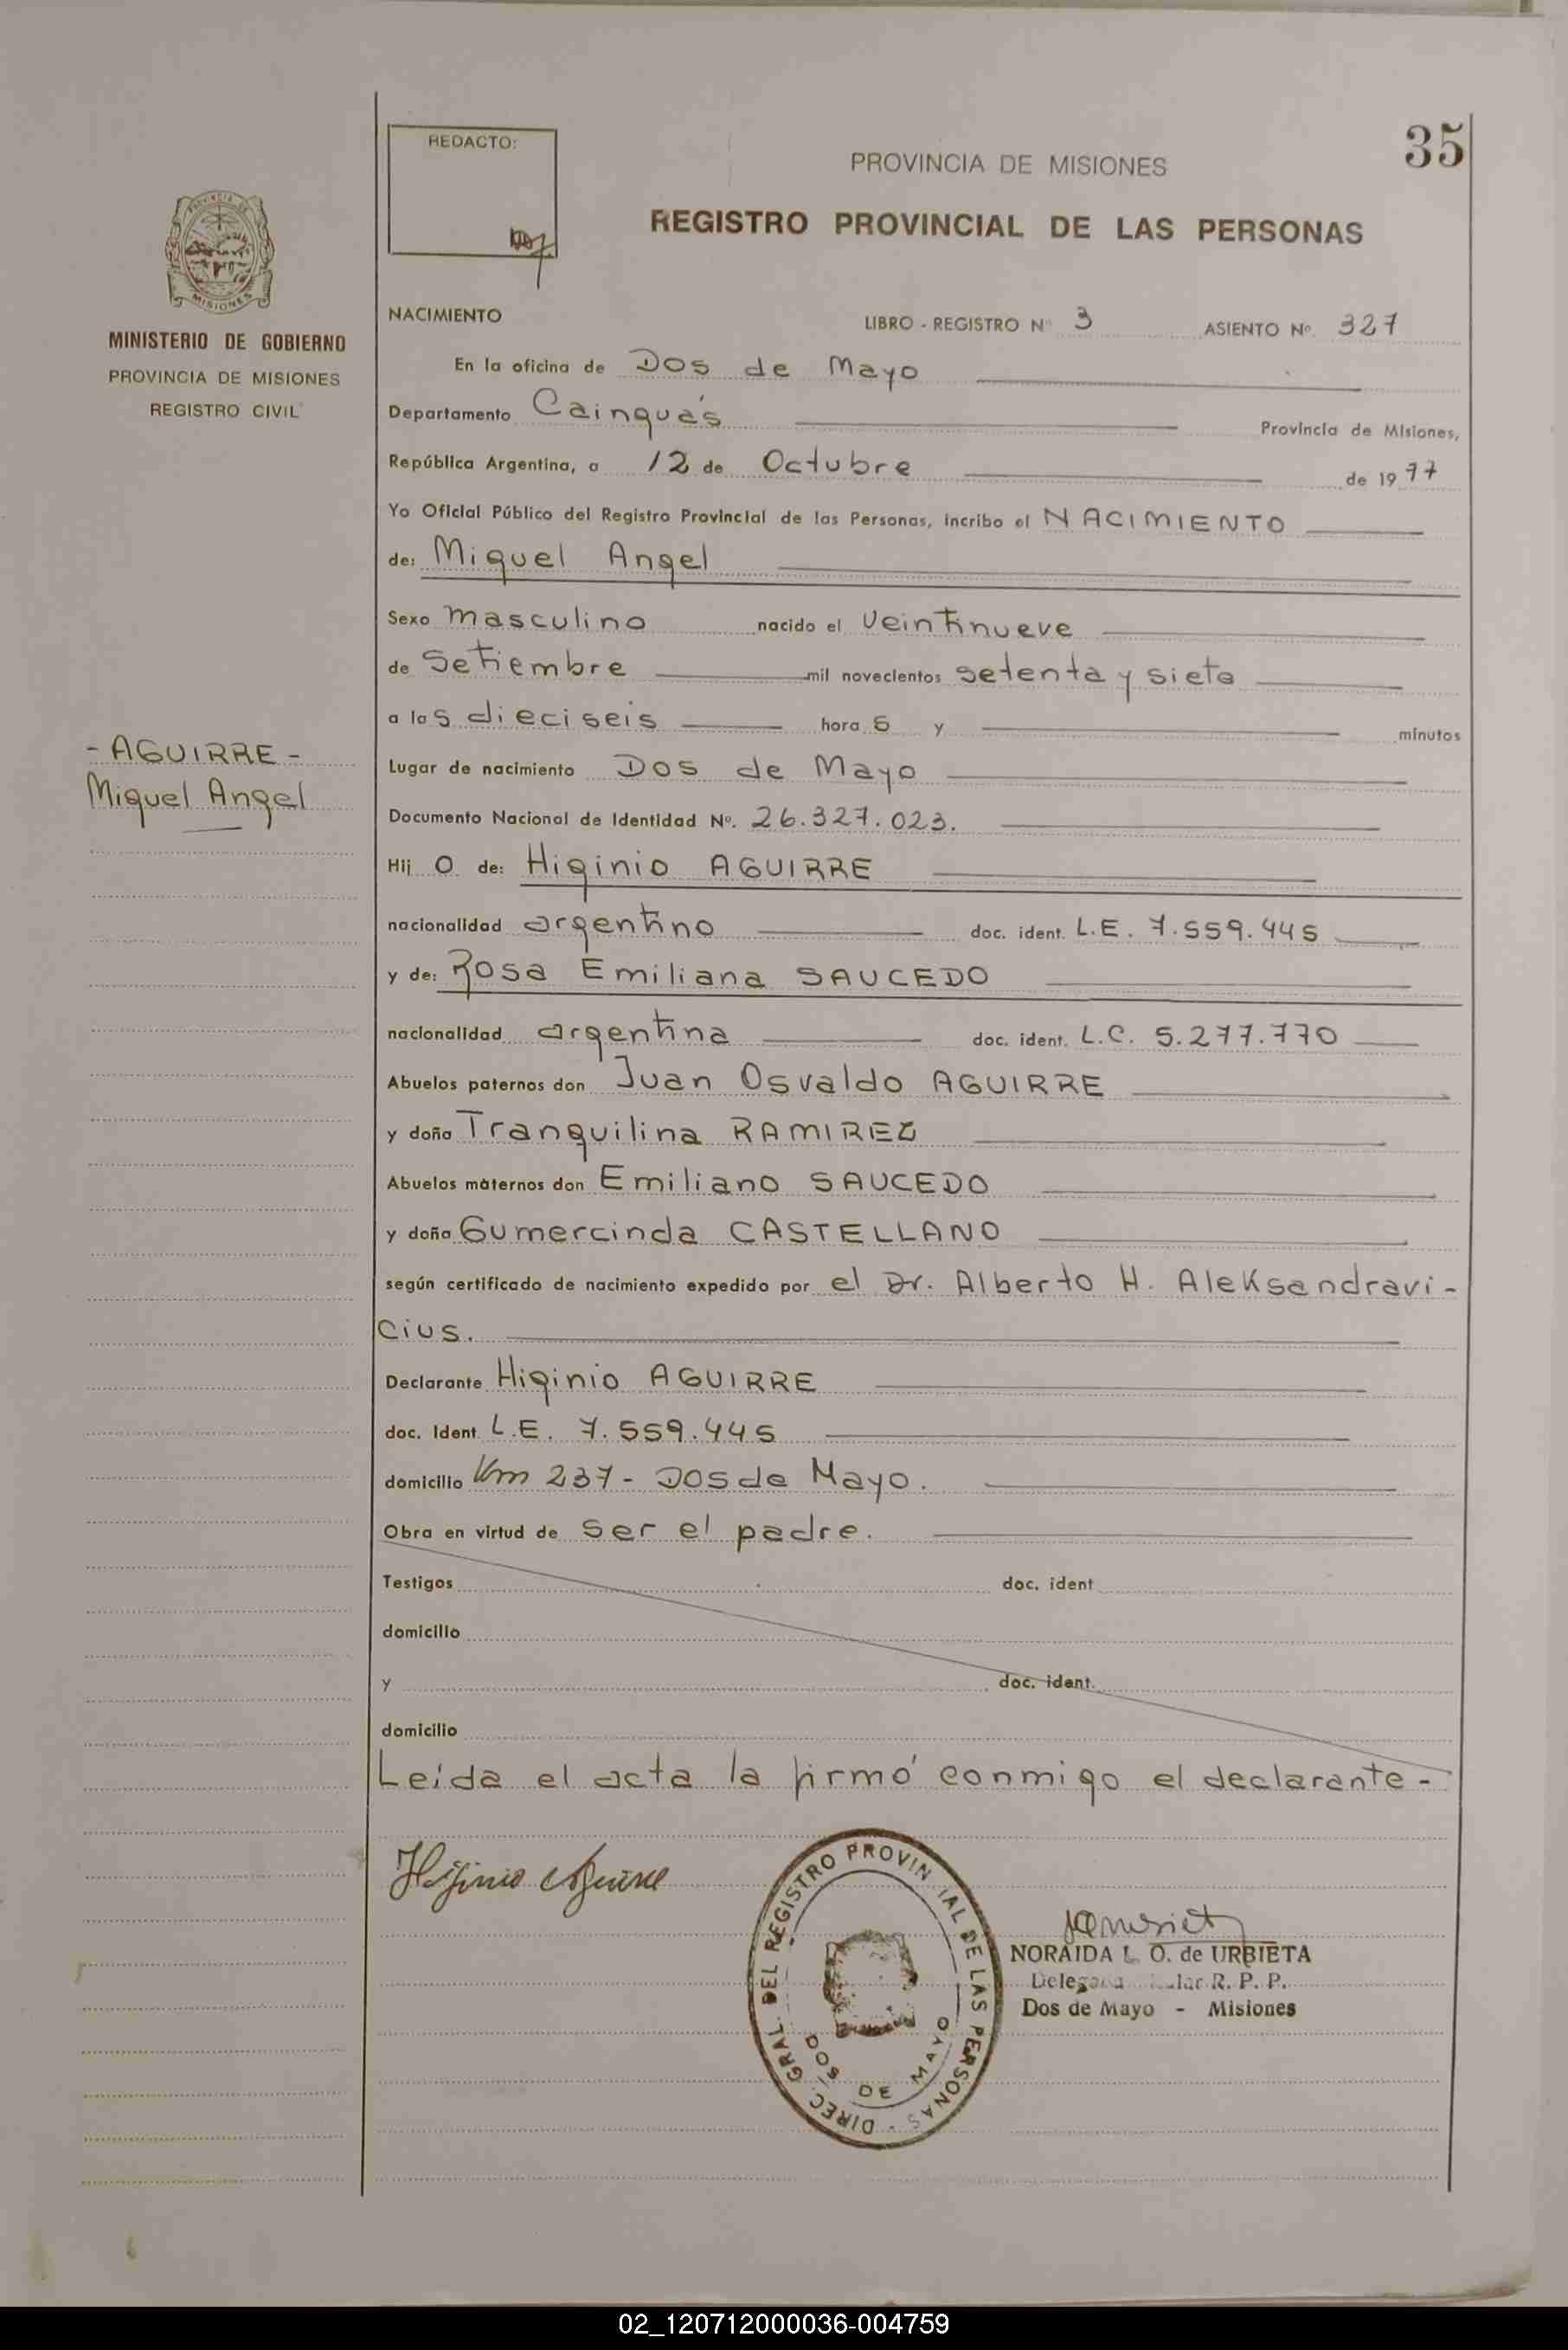 35
REDACTO:
PROVINCIA DE MISIONES
REGISTRO PROVINCIAL DE LAS PERSONAS
MISIONES
MINISTERIO DE GOBIERNO
PROVINCIA DE MISIONES
REGISTRO CIVIL
- AGUIRRE -
Miguel Angel
NACIMIENTO LIBRO - REGISTRO Nº 3 ASIENTO Nº. 327
En la oficina de Dos de Mayo
Departamento Cainguás Provincia de Misiones,
República Argentina, a 12 de Octubre de 1977
Yo Oficial Público del Registro Provincial de las Personas, incribo el NACIMIENTO
de: Miguel Angel
Sexo masculino nacido el veintinueve
de Setiembre mil novecientos setenta y siete
a las dieciseis horas y minutos
Lugar de nacimiento Dos de Mayo
Documento Nacional de Identidad Nº. 26.327.023.
Hijo de: Higinio AGUIRRE
nacionalidad argentino doc. ident. L.E. 7.559.445
y de: Rosa Emiliana SAUCEDO
nacionalidad argentina doc. ident. L.C. 5.277.770
Abuelos paternos don Juan Osvaldo AGUIRRE
y doña Tranquilina RAMIREZ
Abuelos maternos don Emiliano SAUCEDO
y doña Gumercinda CASTELLANO
según certificado de nacimiento expedido por el Dr. Alberto H. Aleksandravi-
cius.
Declarante Higinio AGUIRRE
doc. Ident. L.E. 7.559.445
domicilio Km 237 - Dos de Mayo.
Obra en virtud de ser el padre.
Testigos doc. ident
domicilio
y doc. ident.
domicilio
Leída el acta la firmó conmigo el declarante -
Higinio Aguirre
DIREC. GRAL. DEL REGISTRO PROVIN IAL DE LAS PERSONAS -
DOS DE MAYO
NORAIDA L. O. de URBIETA
R. P. P.
Dos de Mayo - Misiones
02_120712000036-004759